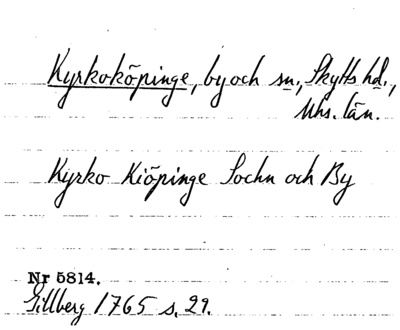 Kyrkoköpinge, by och sn., Skytts hd.,
Mhs. län.
Kyrko Kiöpinge Sochn och By
Nr 5814.
Gillberg 1765 s. 29.